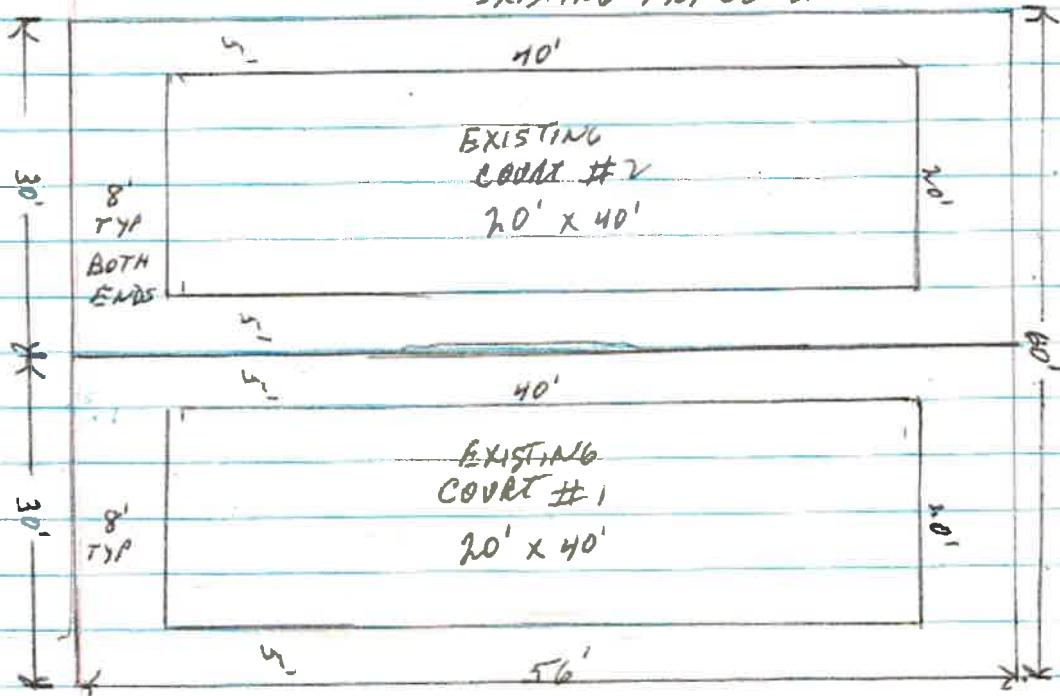 EXISTING
40'
5'
EXISTING
COURT #2
20' x 40'
20'
30'
8'
TYP
BOTH
ENDS
5'
60'
5'
40'
EXISTING
COURT #1
20' x 40'
20'
30'
8'
TYP
5'
56'